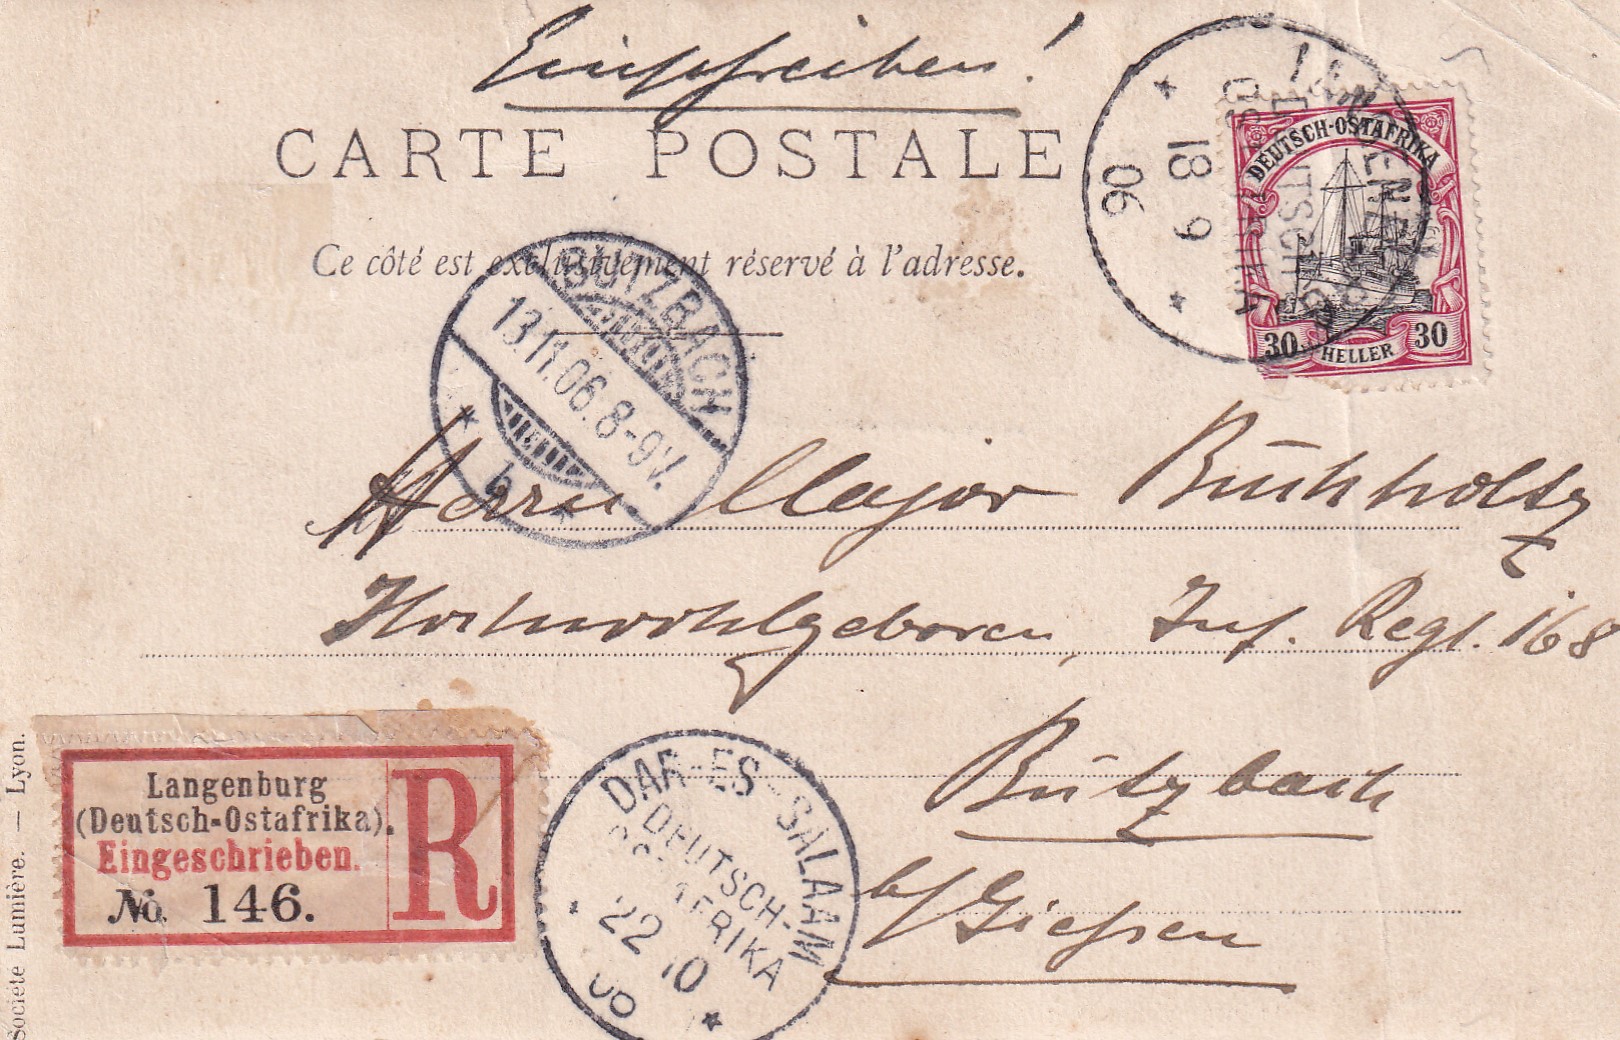 Einschreiben!
CARTE POSTALE
Ce côté est exclusivement réservé à l'adresse.
LANGENBURG
DEUTSCH-
OSTAFRIKA
18 9
06
DEUTSCH-OSTAFRIKA
30 HELLER 30
BUTZBACH
13.11.06.8-9V.
b
Herrn Major Buchholtz
Hochwohlgeboren, Inf. Regt. 168
Butzbach
b/Giessen
Langenburg
(Deutsch-Ostafrika).
Eingeschrieben.
No. 146.
R
DAR-ES-SALAAM
DEUTSCH-
OSTAFRIKA
22 10
06
Société Lumière. — Lyon.